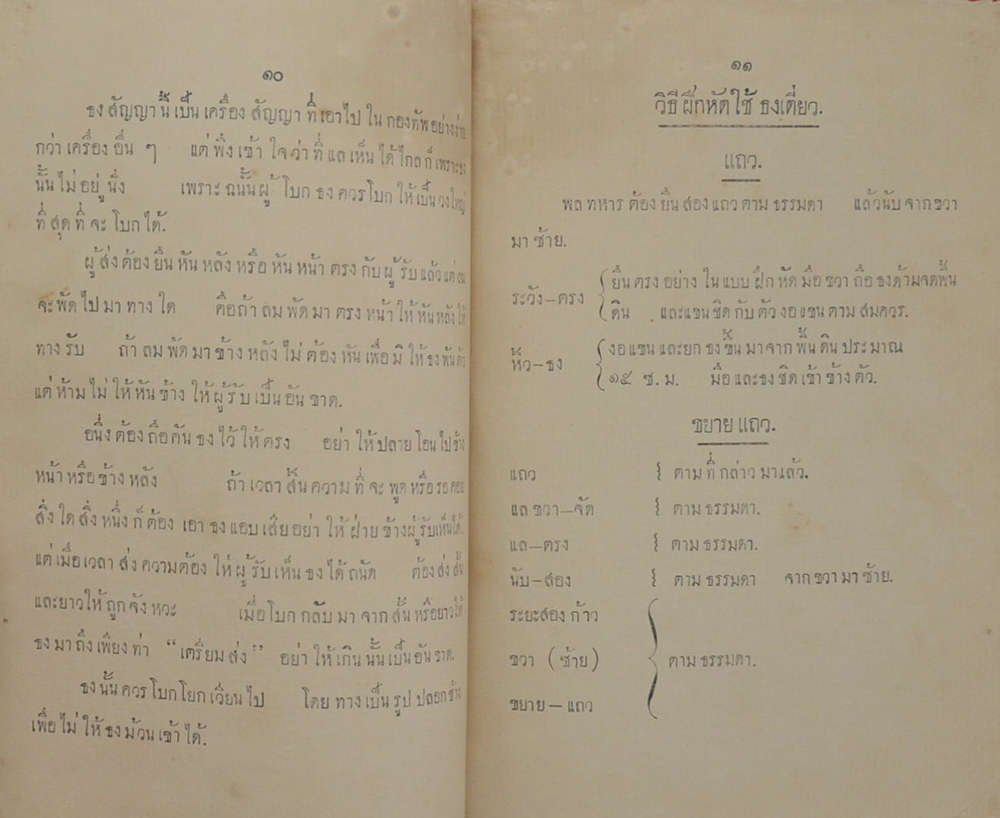 ๑๐
ธง สัญญา นี้ เป็น เครื่อง สัญญา ที่ เอาไป ใน กองทัพ อย่างง่าย
กว่า เครื่อง อื่น ๆ แต่ พึ่ง เข้า ใจ ว่า ที่ แล เห็น ได้ ไกล ก็ เพราะ ธง
นั้น ไม่ อยู่ นิ่ง เพราะ ฉนั้น ผู้ โบก ธง ควร โบก ให้ เป็น วงใหญ่
ที่ สุด ที่ จะ โบก ได้.
ผู้ ส่ง ต้อง ยืน หัน หลัง หรือ หัน หน้า ตรง กับ ผู้ รับ แล้ว แต่ ลม
จะ พัด ไป มา ทาง ใด คือ ถ้า ลม พัด มา ตรง หน้า ให้ หันหลังให้
ทาง รับ ถ้า ลม พัด มา ข้าง หลัง ไม่ ต้อง หัน เพื่อ มิ ให้ ธง พันตัว
แต่ ห้าม ไม่ ให้ หัน ข้าง ให้ ผู้ รับ เป็น อัน ขาด.
อนึ่ง ต้อง ถือ คัน ธง ไว้ ให้ ตรง อย่า ให้ ปลาย โอน ไป ข้าง
หน้า หรือ ข้าง หลัง ถ้า เวลา สิ้น ความ ที่ จะ พูด หรือ รอ คอย
สิ่ง ใด สิ่ง หนึ่ง ก็ ต้อง เอา ธง แอบ เสีย อย่า ให้ ฝ่าย ข้าง ผู้ รับ เห็น ได้.
แต่ เมื่อ เวลา ส่ง ความ ต้อง ให้ ผู้ รับ เห็น ธง ได้ ถนัด ต้อง ส่ง สั้น
และ ยาว ให้ ถูก จัง หวะ เมื่อ โบก กลับ มา จาก สั้น หรือ ยาว ให้
ธง มา ถึง เพียง ท่า “เตรียม ส่ง” อย่า ให้ เกิน นั้น เป็น อัน ขาด.
ธง นั้น ควร โบก โยก เวียน ไป โดย ทาง เป็น รูป ปลอก ช้าง
เพื่อ ไม่ ให้ ธง ม้วน เข้า ได้.
๑๑
วิธี ฝึกหัด ใช้ ธงเดี่ยว.
แถว.
พล ทหาร ต้อง ยืน สอง แถว ตาม ธรรมดา แล้วนับ จาก ขวา
มา ซ้าย.
ระวัง–ตรง { ยืน ตรง อย่าง ใน แบบ ฝึก หัด มือ ขวา ถือ ธงด้ามจดพื้น
ดิน และแขน ชิด กับ ตัว งอ แขน ตาม สมควร.
หิ้ว–ธง { งอ แขน และยก ธง ขึ้น มา จาก พื้น ดิน ประมาณ
๑๕ ซ. ม. มือ และ ธง ชิด เข้า ข้าง ตัว.
ขยาย แถว.
แถว { ตาม ที่ กล่าว มาแล้ว.
แล ขวา–จัด { ตาม ธรรมดา.
แล–ตรง { ตาม ธรรมดา.
นับ–สอง { ตาม ธรรมดา จาก ขวา มา ซ้าย.
ระยะสอง ก้าว
ขวา (ซ้าย) { ตาม ธรรมดา.
ขยาย–แถว